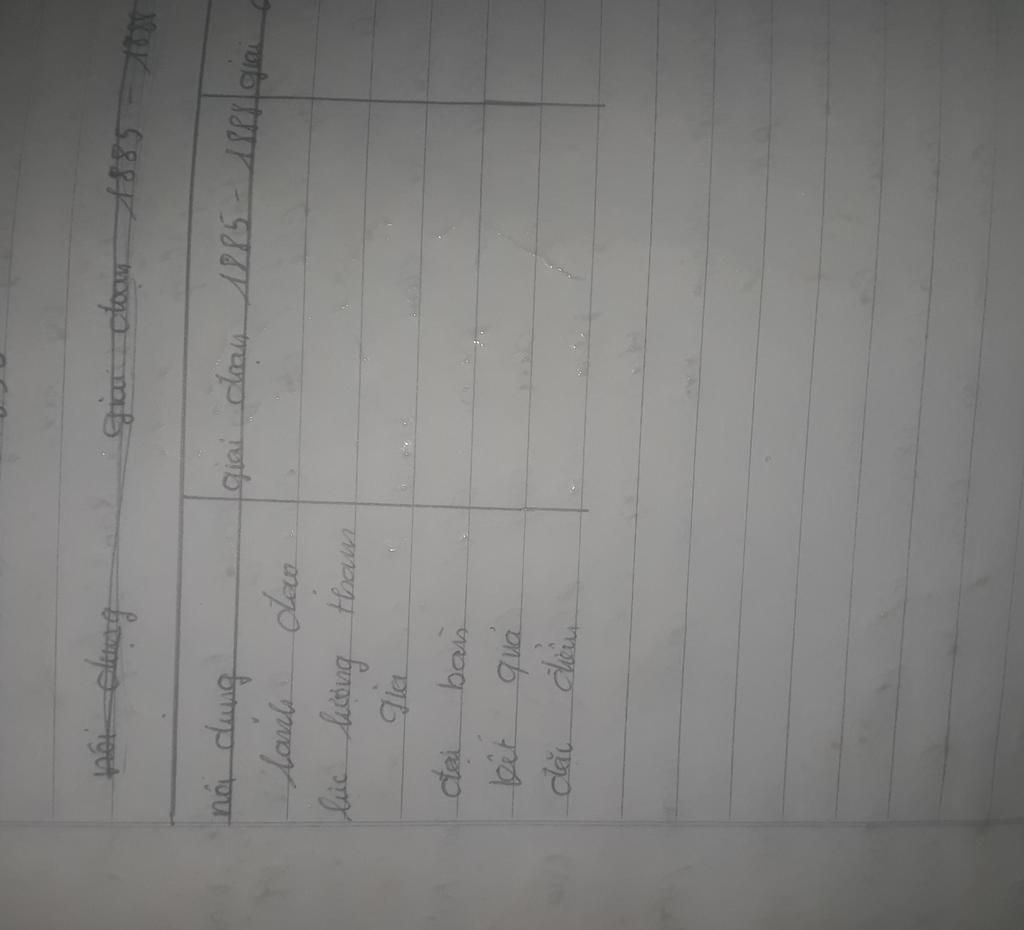 nội dung giai đoạn 1885 - 1888
nội dung giai đoạn 1885 - 1888 giai
lãnh đạo
lực lượng tham
gia
địa bàn
kết quả
đặc điểm